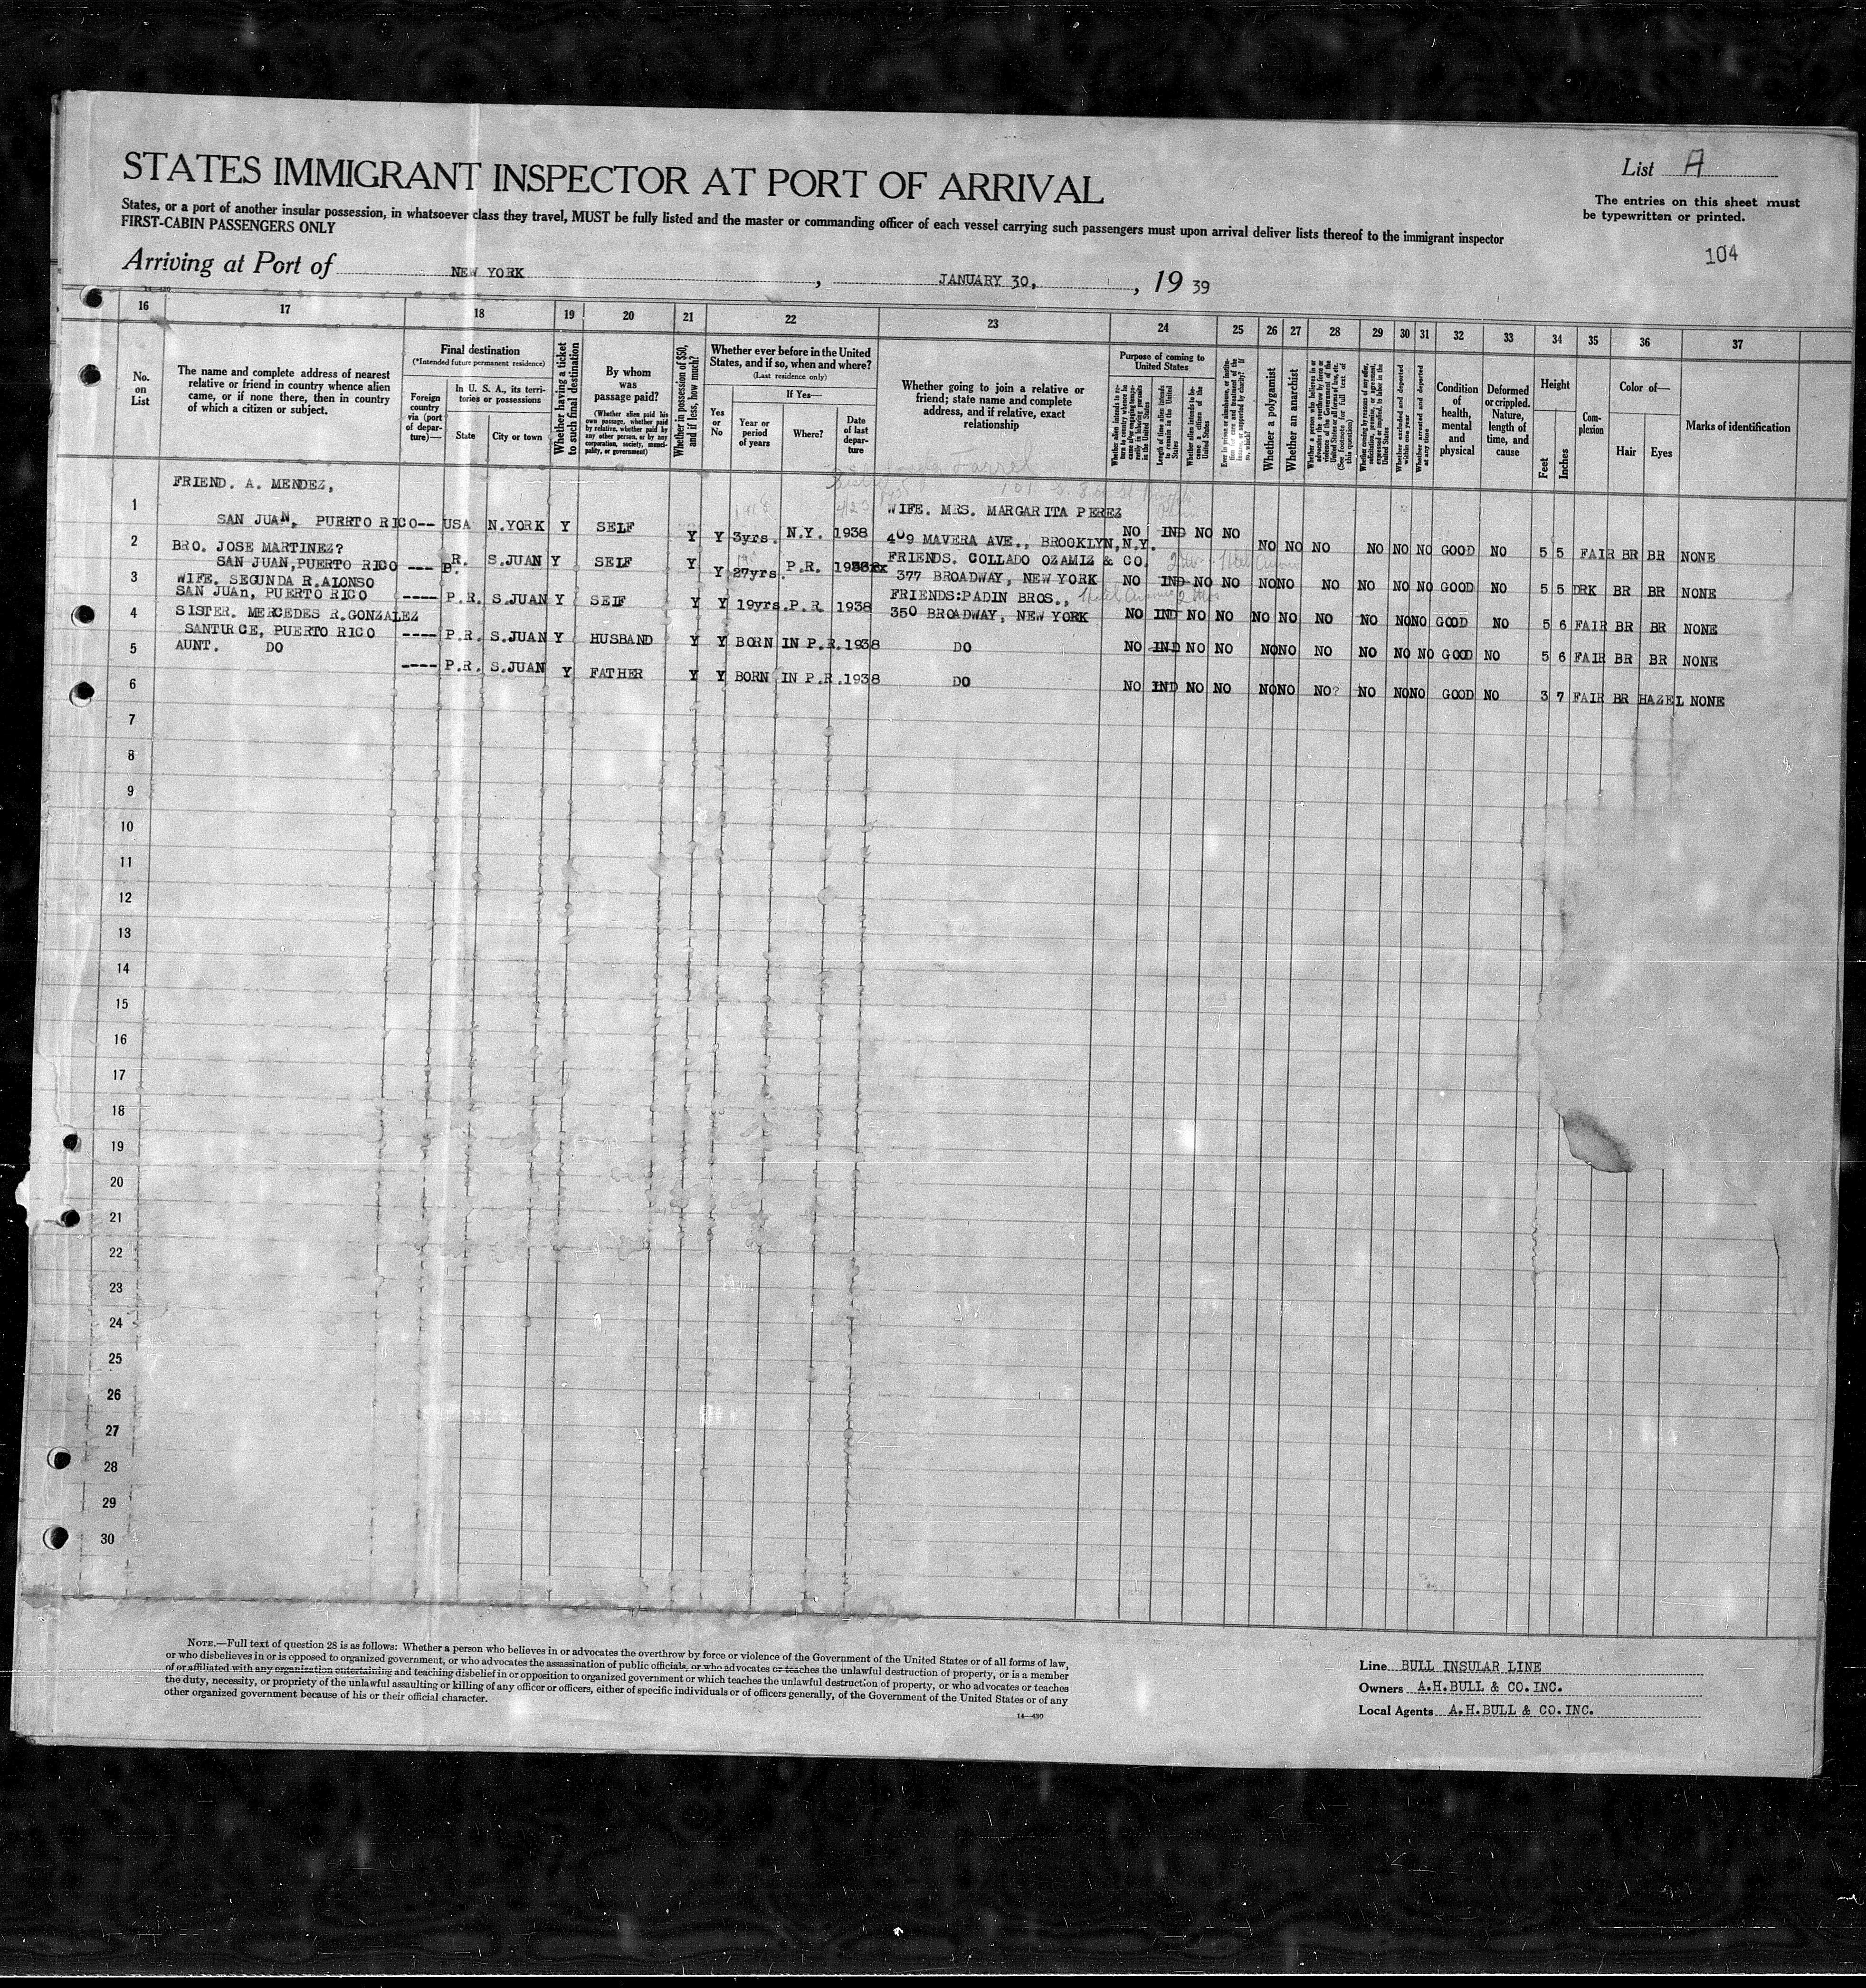 STATES IMMIGRANT INSPECTOR AT PORT OF ARRIVAL
List A
The entries on this sheet must
be typewritten or printed.
States, or a port of another insular possession, in whatsoever class they travel, MUST be fully listed and the master or commanding officer of each vessel carrying such passengers must upon arrival deliver lists thereof to the immigrant inspector
FIRST-CABIN PASSENGERS ONLY
104
Arriving at Port of NEW YORK, JANUARY 30, 1939
16 17 18 19 20 21 22 23 24 25 26 27 28 29 30 31 32 33 34 35 36 37
No. on List
The name and complete address of nearest
relative or friend in country whence alien
came, or if none there, then in country
of which a citizen or subject.
Final destination
(*Intended future permanent residence)
Foreign country via (port of departure)—
In U. S. A., its territories or possessions
State
City or town
Whether having a ticket to such final destination
By whom was passage paid?
(Whether alien paid his own passage, whether paid by relative, whether paid by any other person, or by any corporation, society, municipality, or government)
Whether in possession of $50, and if less, how much?
Whether ever before in the United
States, and if so, when and where?
(Last residence only)
Yes or No
If Yes—
Year or period of years
Where?
Date of last departure
Whether going to join a relative or
friend; state name and complete
address, and if relative, exact
relationship
Purpose of coming to United States
Length of time alien intends to remain in the United States
Whether alien intends to become a citizen of the United States
Whether a polygamist
Whether an anarchist
Whether excluded and deported within one year
Whether arrested and deported at any time
Condition of health, mental and physical
Deformed or crippled. Nature, length of time, and cause
Height
Feet
Inches
Complexion
Color of—
Hair
Eyes
Marks of identification
FRIEND. A. MENDEZ,
1 WIFE. MRS. MARGARITA PEREZ
SAN JUAN, PUERTO RICO-- USA N.YORK Y SELF Y Y 3yrs. N.Y. 1938 409 MAVERA AVE., BROOKLYN, N.Y. NO IND NO NO NO NO NO NO NO NO GOOD NO 5 5 FAIR BR BR NONE
2 BRO. JOSE MARTINEZ? FRIENDS. COLLADO OZAMIZ & CO.
SAN JUAN, PUERTO RICO --- P.R. S.JUAN Y SELF Y Y 27yrs. P.R. 377 BROADWAY, NEW YORK NO IND NO NO NO NO NO NO NO NO GOOD NO 5 5 DRK BR BR NONE
3 WIFE. SEGUNDA R.ALONSO FRIENDS:PADIN BROS.,
SAN JUAn, PUERTO RICO ---- P.R. S.JUAN Y SELF Y Y 19yrs. P.R. 1938 350 BROADWAY, NEW YORK NO IND NO NO NO NO NO NO NO NO GOOD NO 5 6 FAIR BR BR NONE
4 SISTER. MERCEDES R.GONZALEZ
SANTURCE, PUERTO RICO ---- P.R. S.JUAN Y HUSBAND Y Y BORN IN P.R. 1938 DO NO IND NO NO NO NO NO NO NO NO GOOD NO 5 6 FAIR BR BR NONE
5 AUNT. DO
---- P.R. S.JUAN Y FATHER Y Y BORN IN P.R. 1938 DO NO IND NO NO NO NO NO? NO NO NO GOOD NO 3 7 FAIR BR HAZEL NONE
6
7
8
9
10
11
12
13
14
15
16
17
18
19
20
21
22
23
24
25
26
27
28
29
30
NOTE.—Full text of question 28 is as follows: Whether a person who believes in or advocates the overthrow by force or violence of the Government of the United States or of all forms of law,
or who disbelieves in or is opposed to organized government, or who advocates the assassination of public officials, or who advocates or teaches the unlawful destruction of property, or is a member
of or affiliated with any organization entertaining and teaching disbelief in or opposition to organized government or which teaches the unlawful destruction of property, or who advocates or teaches
the duty, necessity, or propriety of the unlawful assaulting or killing of any officer or officers, either of specific individuals or of officers generally, of the Government of the United States or of any
other organized government because of his or their official character.
14—430
Line BULL INSULAR LINE
Owners A.H.BULL & CO.INC.
Local Agents A.H.BULL & CO.INC.